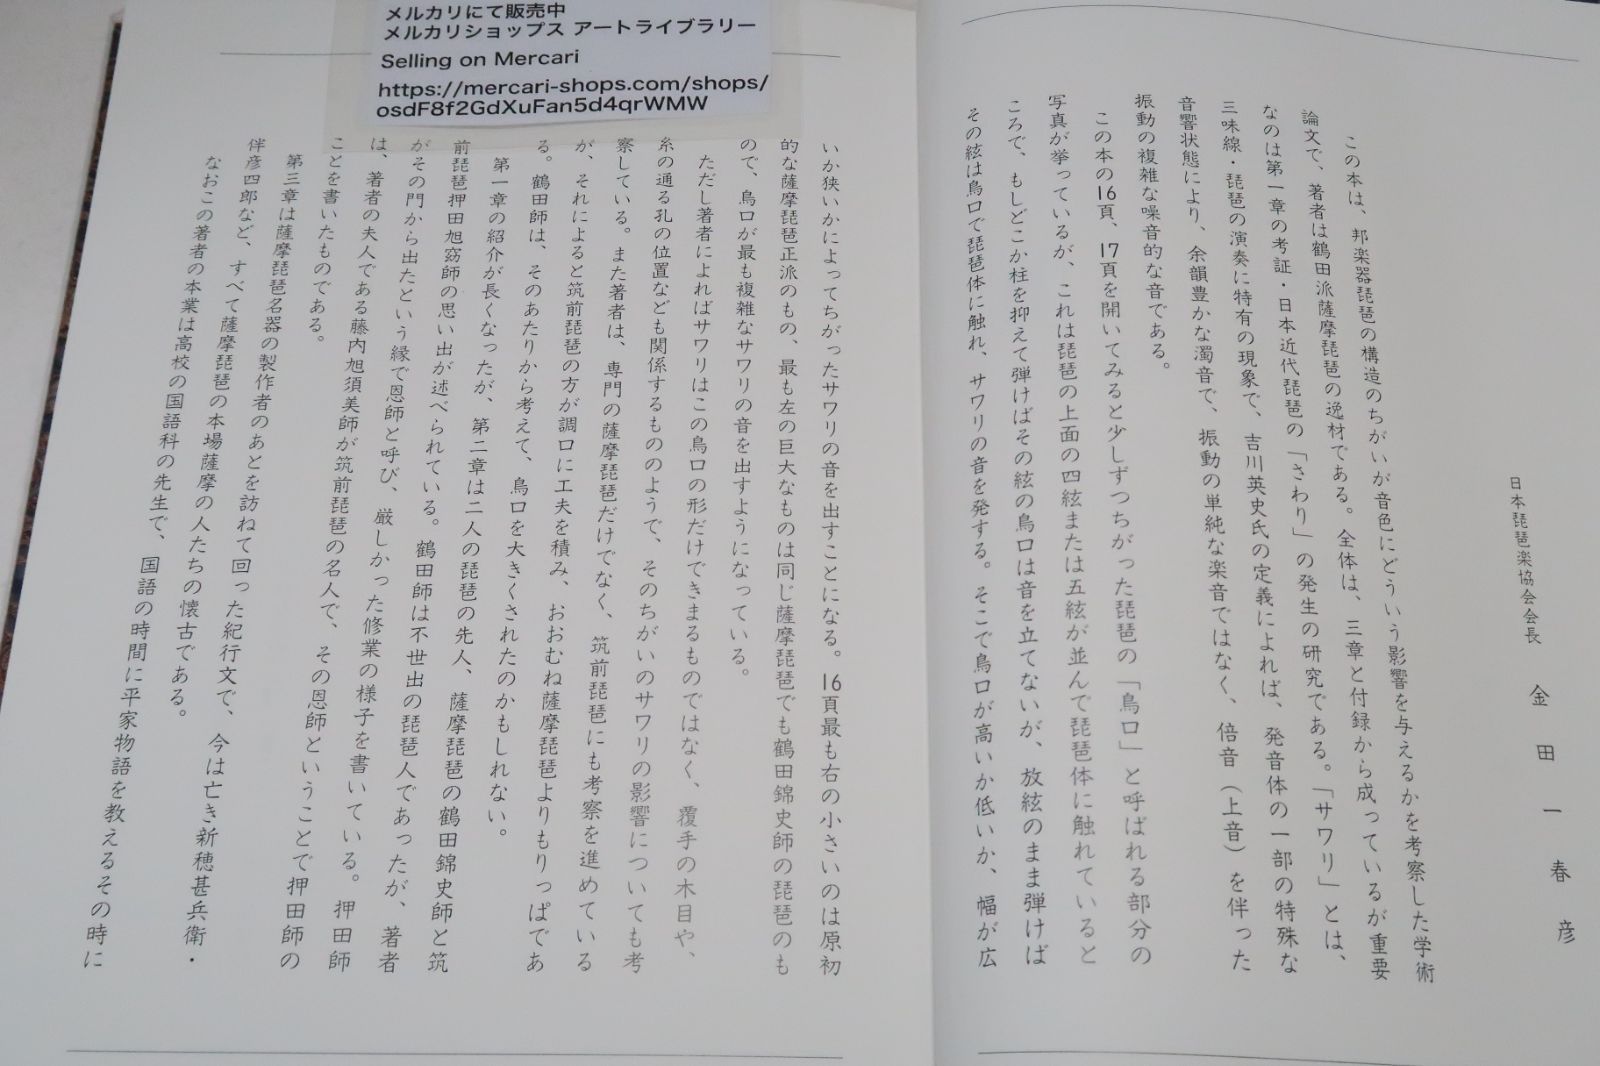 メルカリにて販売中
メルカリショップス アートライブラリー
Selling on Mercari
https://mercari-shops.com/shops/
osdF8f2GdXuFan5d4qrWMW
日本琵琶楽協会会長 金田一春彦
この本は、邦楽器琵琶の構造のちがいが音色にどういう影響を与えるかを考察した学術
論文で、著者は鶴田派薩摩琵琶の逸材である。全体は、三章と付録から成っているが重要
なのは第一章の考証・日本近代琵琶の「さわり」の発生の研究である。「サワリ」とは、
三味線・琵琶の演奏に特有の現象で、吉川英史氏の定義によれば、発音体の一部の特殊な
音響状態により、余韻豊かな濁音で、振動の単純な楽音ではなく、倍音（上音）を伴った
振動の複雑な噪音的な音である。
この本の16頁、17頁を開いてみると少しずつちがった琵琶の「鳥口」と呼ばれる部分の
写真が挙っているが、これは琵琶の上面の四絃または五絃が並んで琵琶体に触れていると
ころで、もしどこか柱を抑えて弾けばその絃の鳥口は音を立てないが、放絃のまま弾けば
その絃は鳥口で琵琶体に触れ、サワリの音を発する。そこで鳥口が高いか低いか、幅が広
いか狭いかによってちがったサワリの音を出すことになる。16頁最も右の小さいのは原初
的な薩摩琵琶正派のもの、最も左の巨大なものは同じ薩摩琵琶でも鶴田錦史師の琵琶のも
ので、鳥口が最も複雑なサワリの音を出すようになっている。
ただし著者によればサワリはこの鳥口の形だけできまるものではなく、覆手の木目や、
糸の通る孔の位置なども関係するもののようで、そのちがいのサワリの影響についても考
察している。また著者は、専門の薩摩琵琶だけでなく、筑前琵琶にも考察を進めている
が、それによると筑前琵琶の方が調口に工夫を積み、おおむね薩摩琵琶よりもりっぱであ
る。鶴田師は、そのあたりから考えて、鳥口を大きくされたのかもしれない。
第一章の紹介が長くなったが、第二章は二人の琵琶の先人、薩摩琵琶の鶴田錦史師と筑
前琵琶押田旭窈師の思い出が述べられている。鶴田師は不世出の琵琶人であったが、著者
がその門から出たという縁で恩師と呼び、厳しかった修業の様子を書いている。押田師
は、著者の夫人である藤内旭須美師が筑前琵琶の名人で、その恩師ということで押田師の
ことを書いたものである。
第三章は薩摩琵琶名器の製作者のあとを訪ねて回った紀行文で、今は亡き新穂甚兵衛・
伴彦四郎など、すべて薩摩琵琶の本場薩摩の人たちの懐古である。
なおこの著者の本業は高校の国語科の先生で、国語の時間に平家物語を教えるその時に